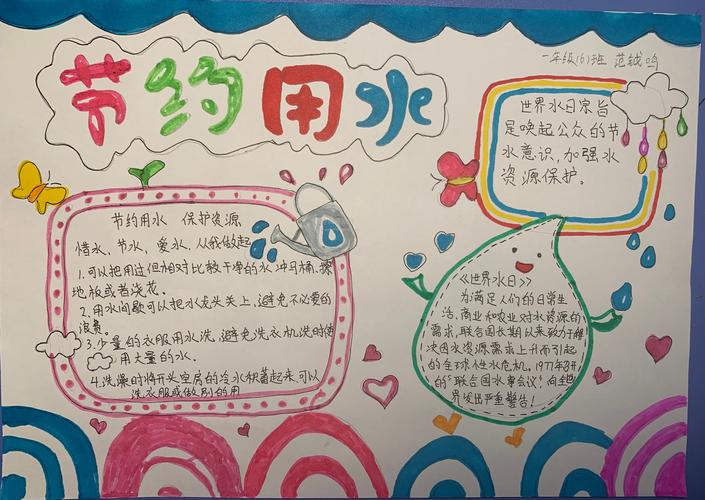 节约用水
一年级(6)班 范钺鸣
世界水日宗旨
是唤起公众的节
水意识,加强水
资源保护。
节约用水 保护资源
惜水、节水、爱水,从我做起
1.可以把用过但相对比较干净的水冲马桶、擦
地板或者浇花。
2.用水间歇可以把水龙头关上,避免不必要的
浪费。
3.少量的衣服用水洗,避免洗衣机洗时使
用大量的水。
4.洗澡时将开头空层的冷水积蓄起来,可以
洗衣服或做别的用
《世界水日》
为满足人们的日常生
活、商业和农业对水资源的
需求,联合国长期以来致力于解
决因水资源需求上升而引起
的全球性水危机。1977年召开
的“联合国水事会议”,向全世
界发出严重警告!